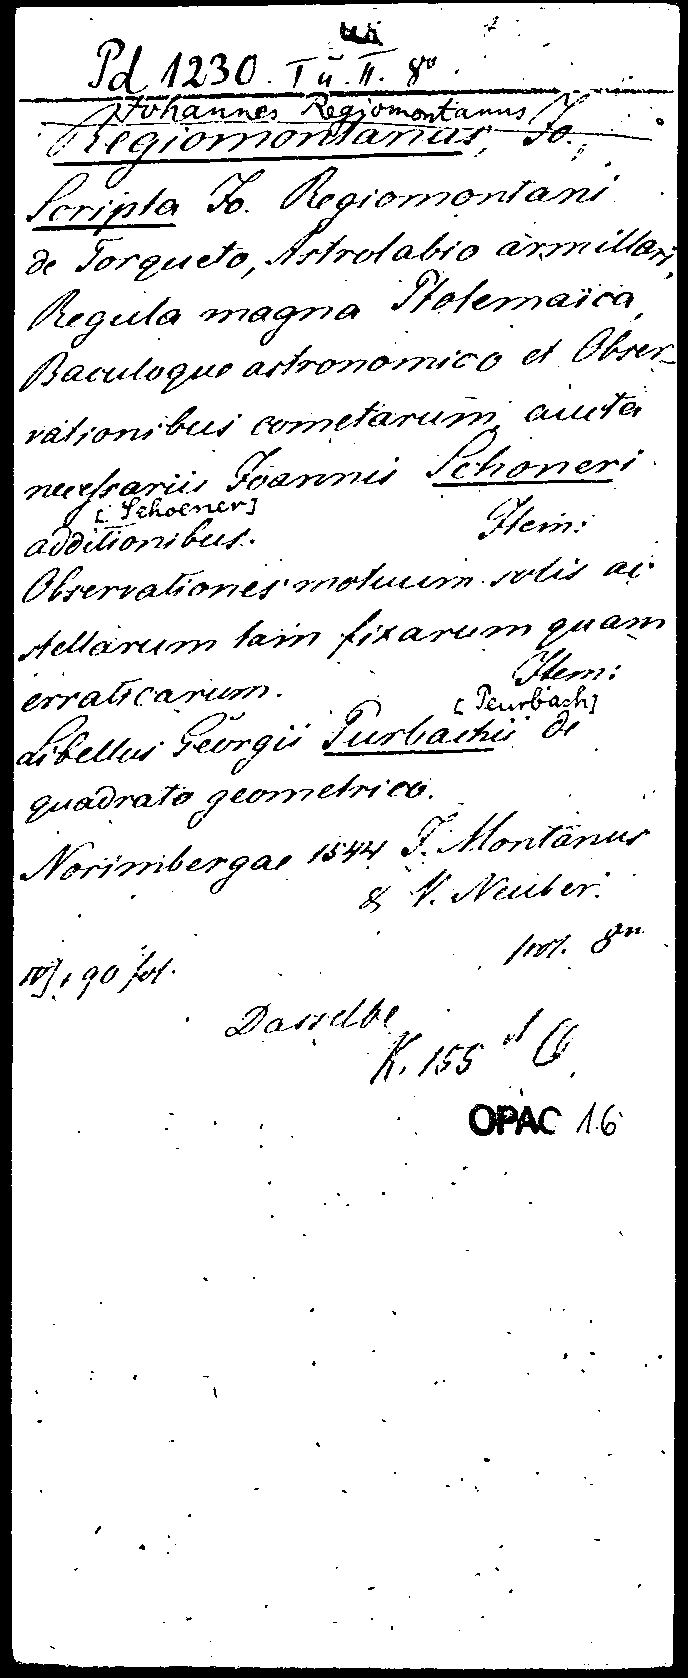 Pd 1230. I u. II. 8º.
Johannes Regiomontanus
Regiomontanus, Jo.
Scripta Jo. Regiomontani
de Torqueto, Astrolabio armillari,
Regula magna Ptolemaica,
Baculoque astronomico et Obser-
vationibus cometarum, aucta
necessariis Joannis Schoneri
[Schoener]
additionibus. Item:
Observationes motuum solis ac
stellarum tam fixarum quam
erraticarum. Item:
[Peurbach]
Libellus Georgii Purbachii de
quadrato geometrico.
Norimbergae 1544 J. Montanus
& V. Neuber.
IV], 90 fol.
Dasselbe
K. 155
OPAC 16